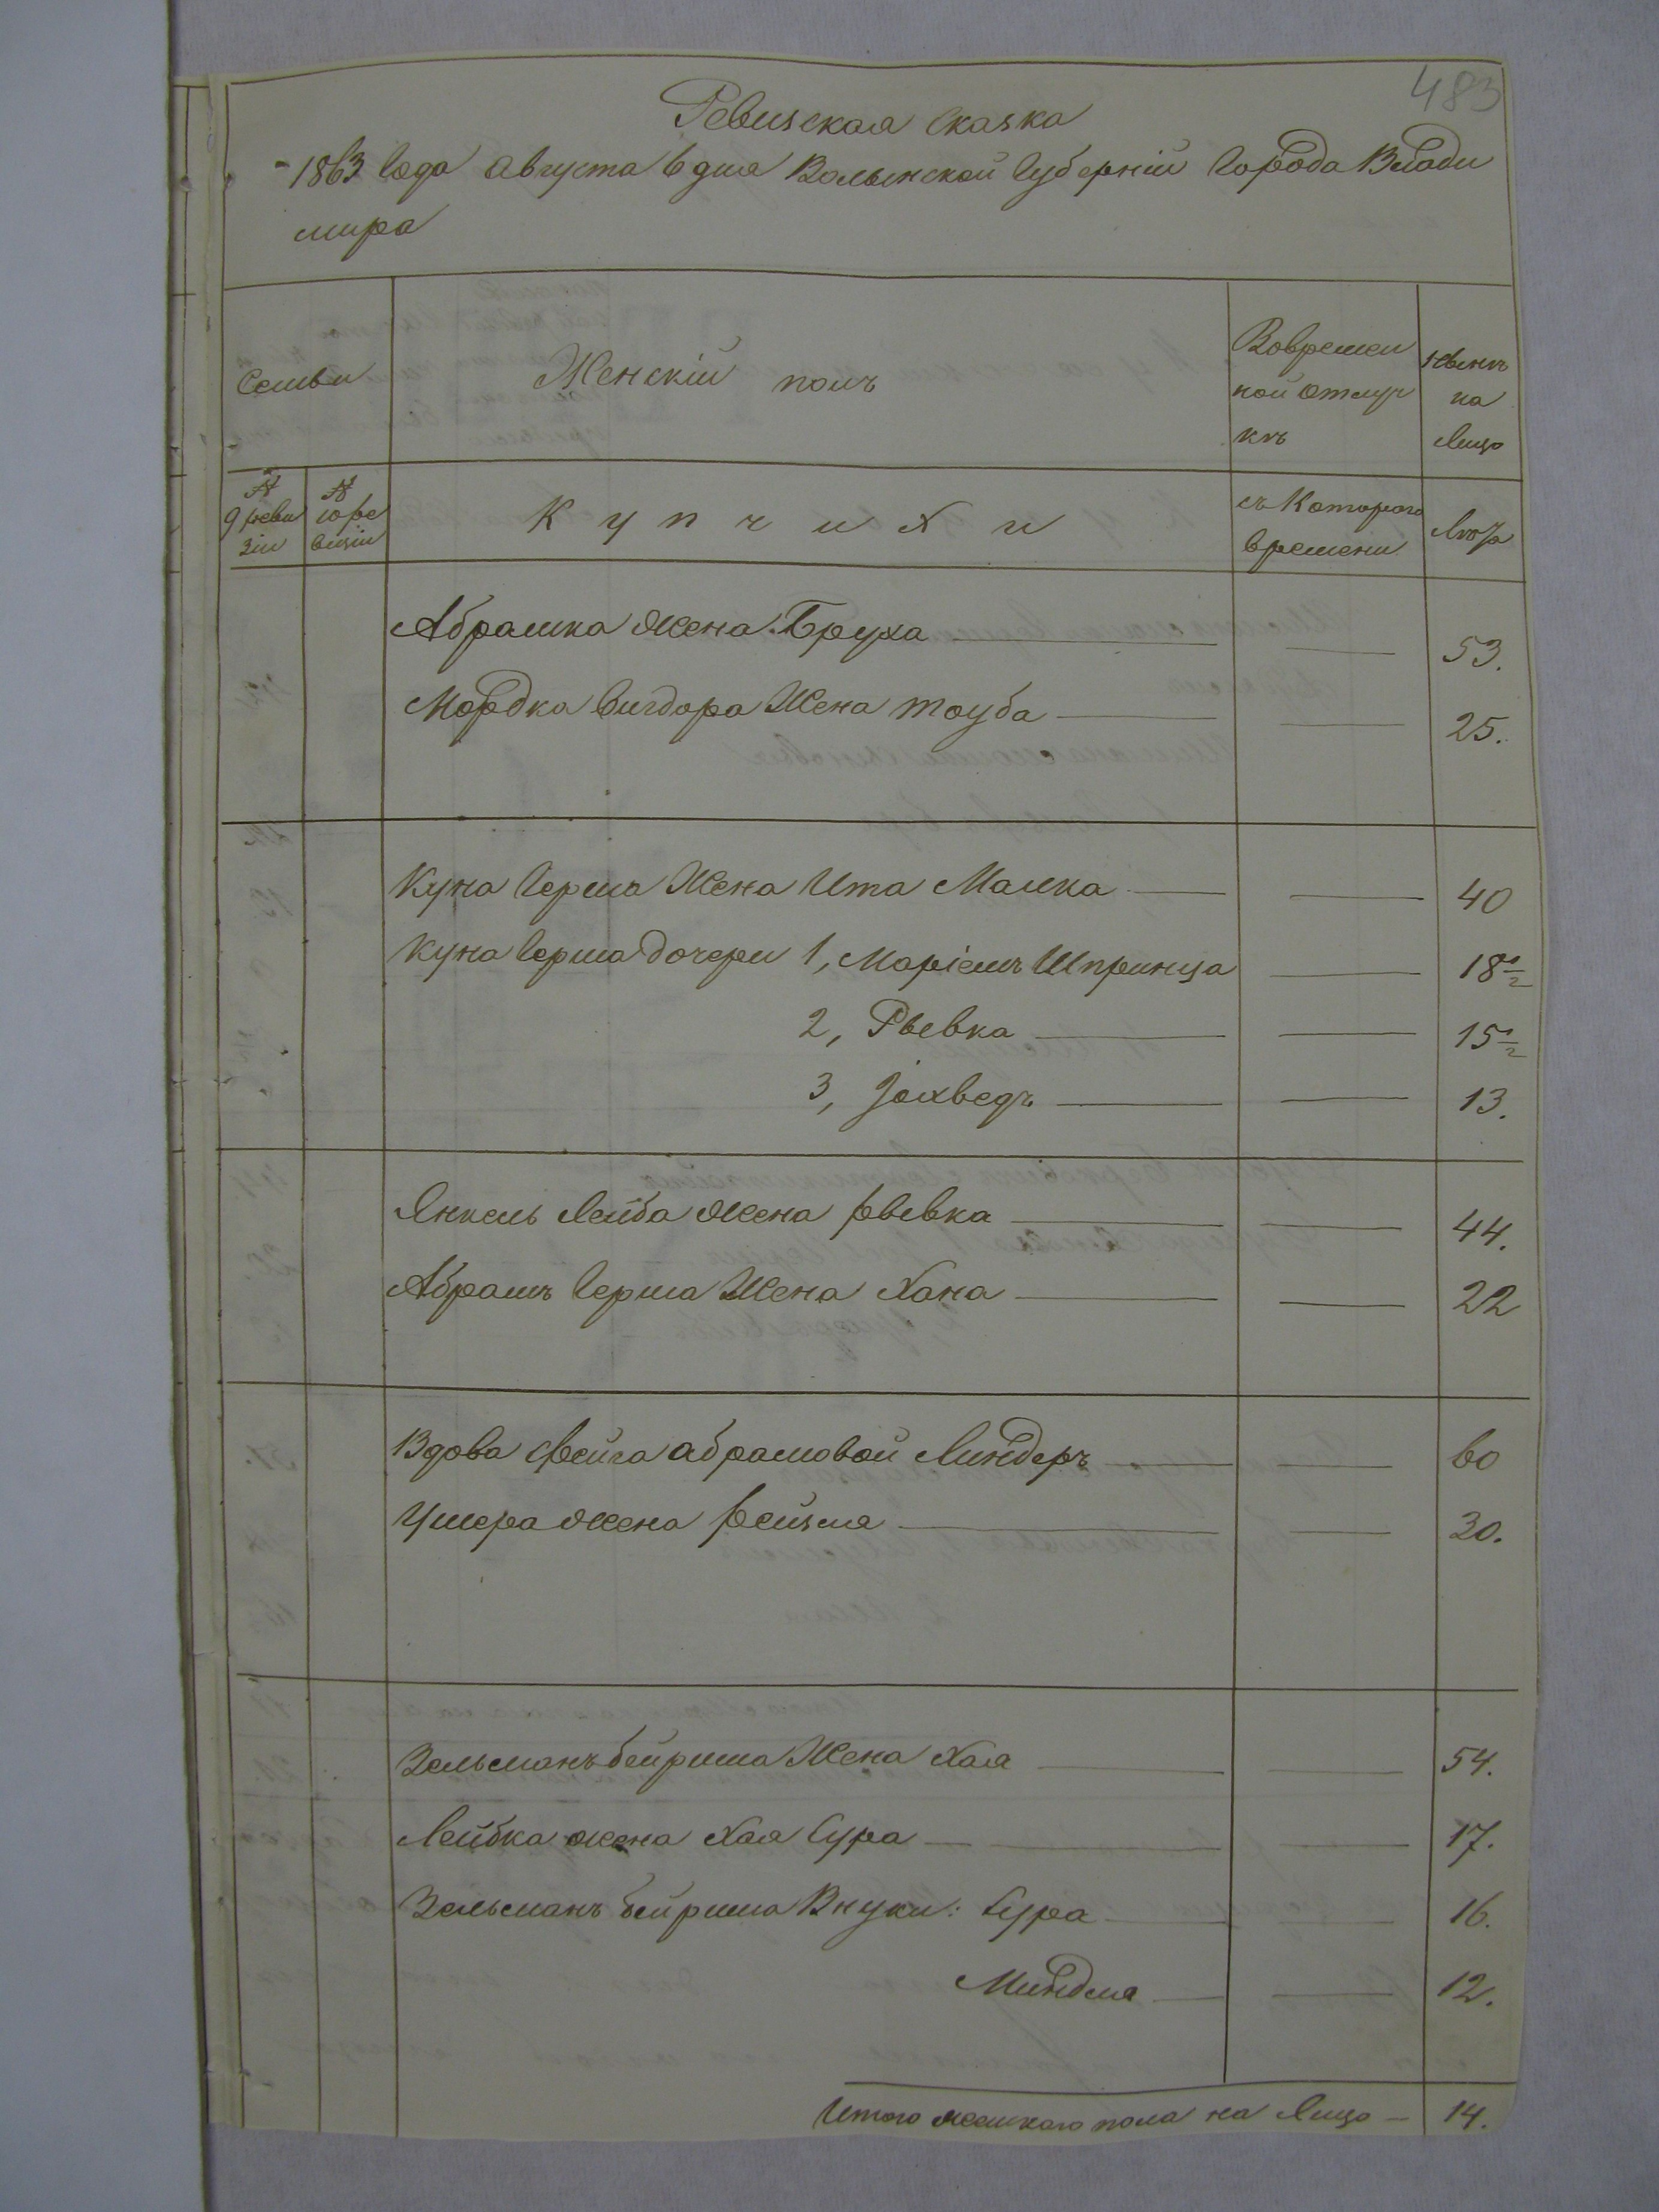 483
Ревизская сказка
1863 года августа 6 дня Волынской губерніи города Влади
мира
Семьи
Женскій полъ
Вовремен
ной отлуч
кѣ
Нынѣ
на
Лицо
№
9 реви
зіи
№
10 ре
визіи
Купчихи
съ Котораго
времени
Лѣта
Абрамка жена Бруха 53.
Мордка Вигдора Жена тауба 25.
Куна Герша Жена Ита Малка 40
Куна Герша дочери 1, Маріемъ Шпринца 18 1/2
2, Рывка 15 1/2
3, Іохведъ 13.
Янкель Лейба жена рывка 44.
Абрамъ Герша Жена Хана 22
Вдова Фейга абрамовой Линдеръ 60
Ушера жена рейзля 30.
Зельманъ бейриша Жена Хая 54.
Лейбка жена Хая Сура 17.
Зельманъ бейриша Внуки: Сура 16.
Миндля 12.
Итого женскаго пола на Лицо 14.